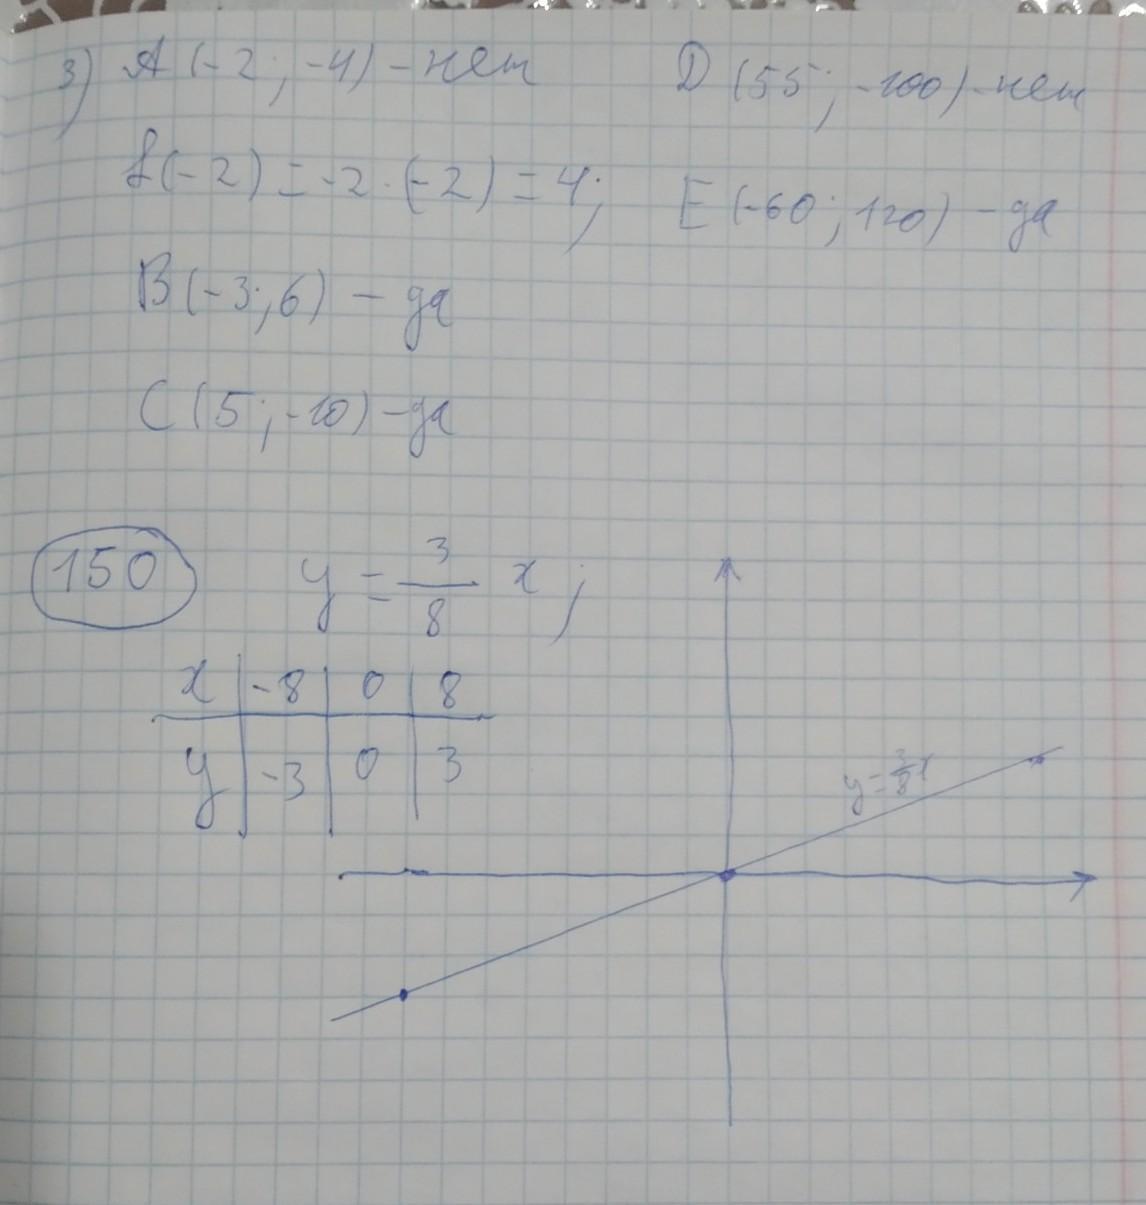 3) A (-2; -4) - нет
D (55; -100) - нет
f(-2) = -2 · (-2) = 4;
E (-60; 120) - да
B (-3; 6) - да
C (5; -10) - да
150
y = 3/8 x;
x | -8 | 0 | 8
y | -3 | 0 | 3
y = 3/8 x